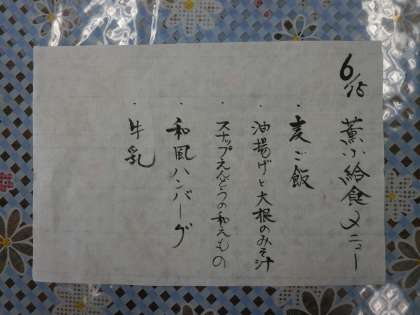 6/15 薫小給食メニュー
・麦ご飯
・油揚げと大根のみそ汁
・スナップえんどうの和えもの
・和風ハンバーグ
・牛乳